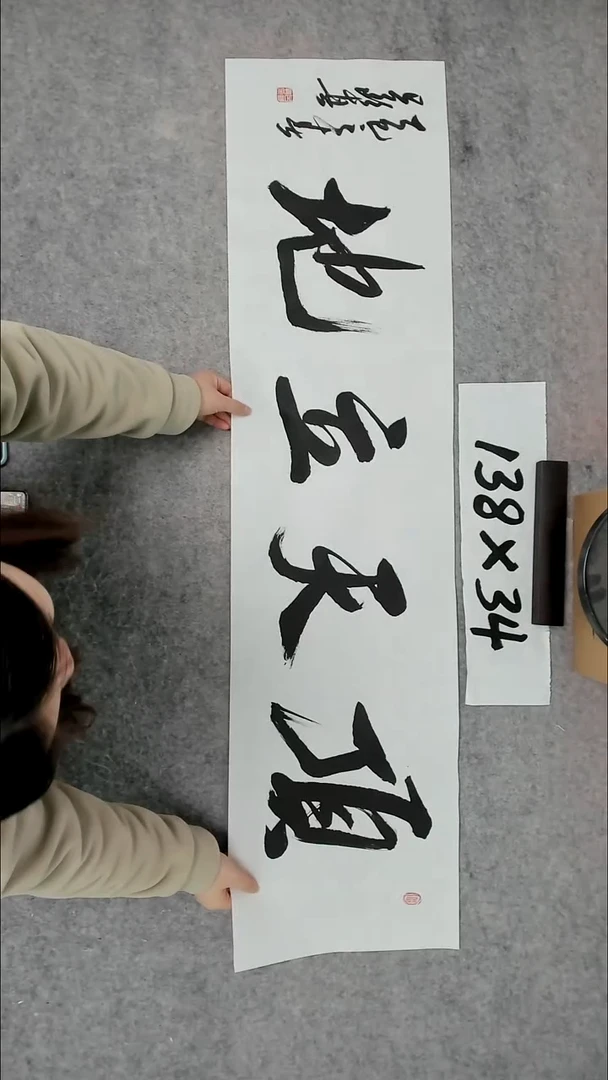 頂天立地
138×34